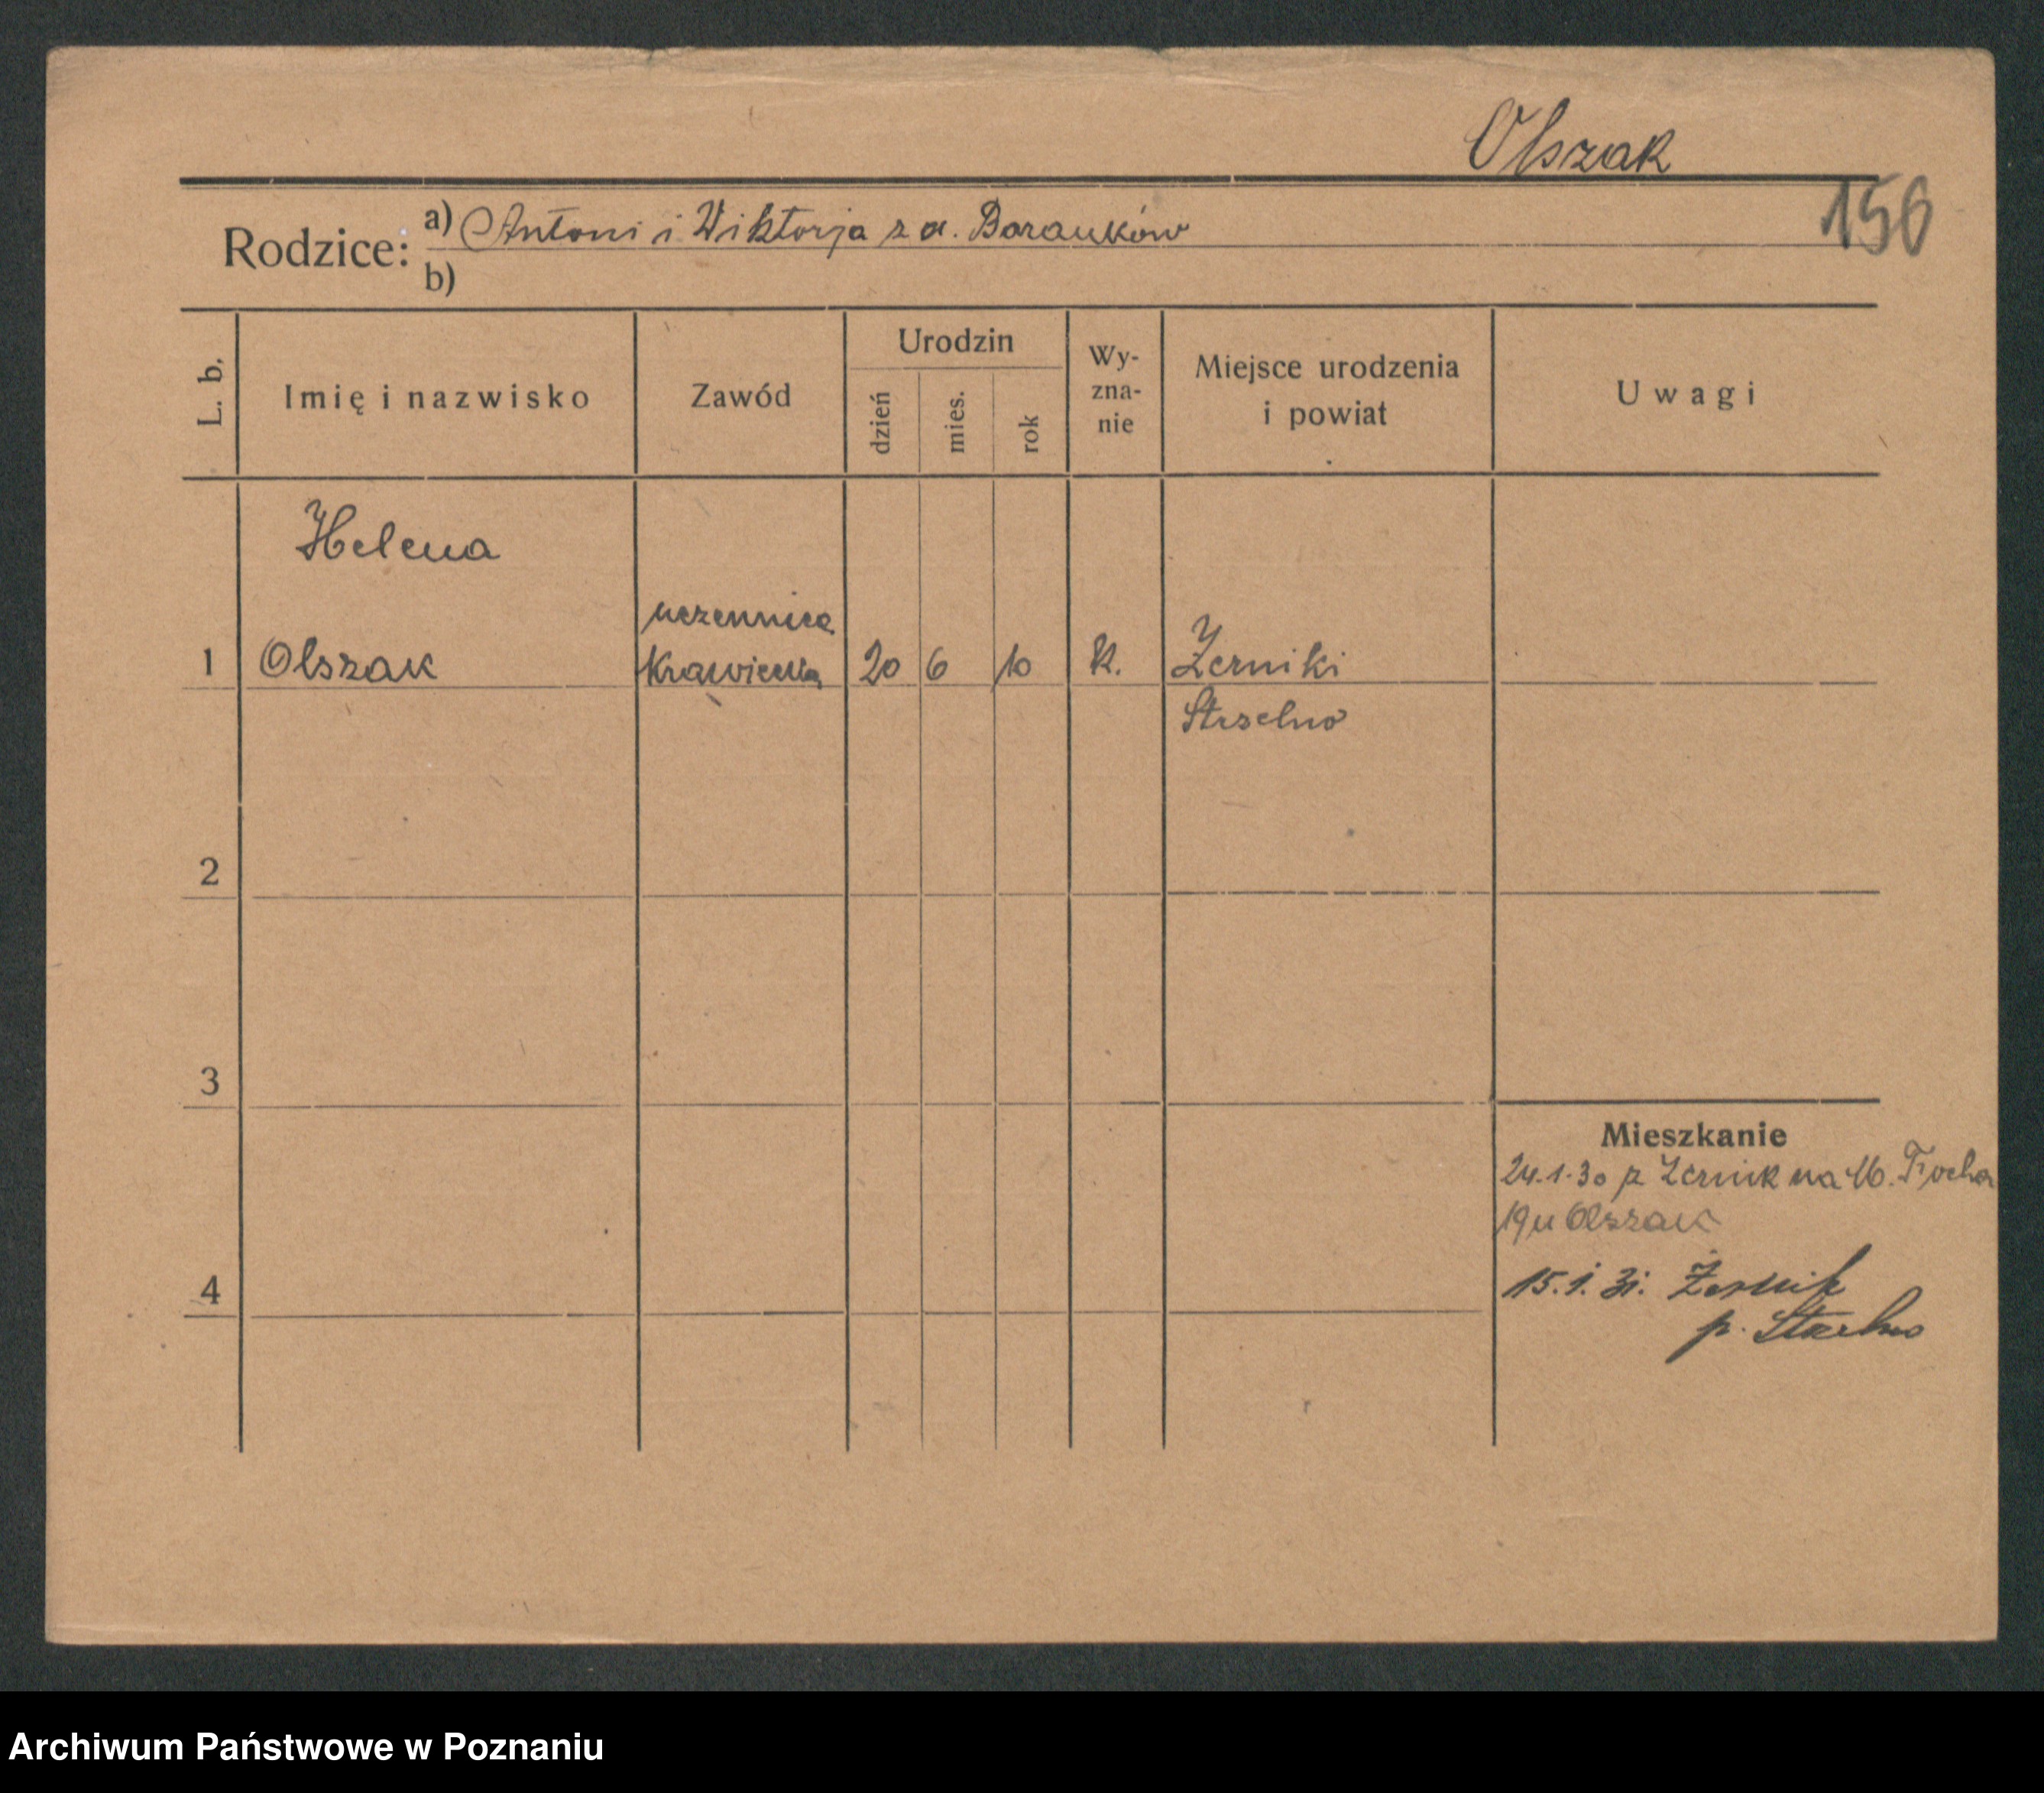 Olszak
156
Rodzice: a) Antoni i Wiktorja z d. Baranków
b)
L. b. Imię i nazwisko Zawód Urodzin dzień mies. rok Wy-zna-nie Miejsce urodzenia i powiat Uwagi
Helena
uczennica
1 Olszak krawiecka 20 6 10 k. Żerniki
Strzelno
2
3
Mieszkanie
24.1.30 z Zernik na M. Focha
19 u Olszak
15.1.31. Żernik
4
p. Strzelno
Archiwum Państwowe w Poznaniu